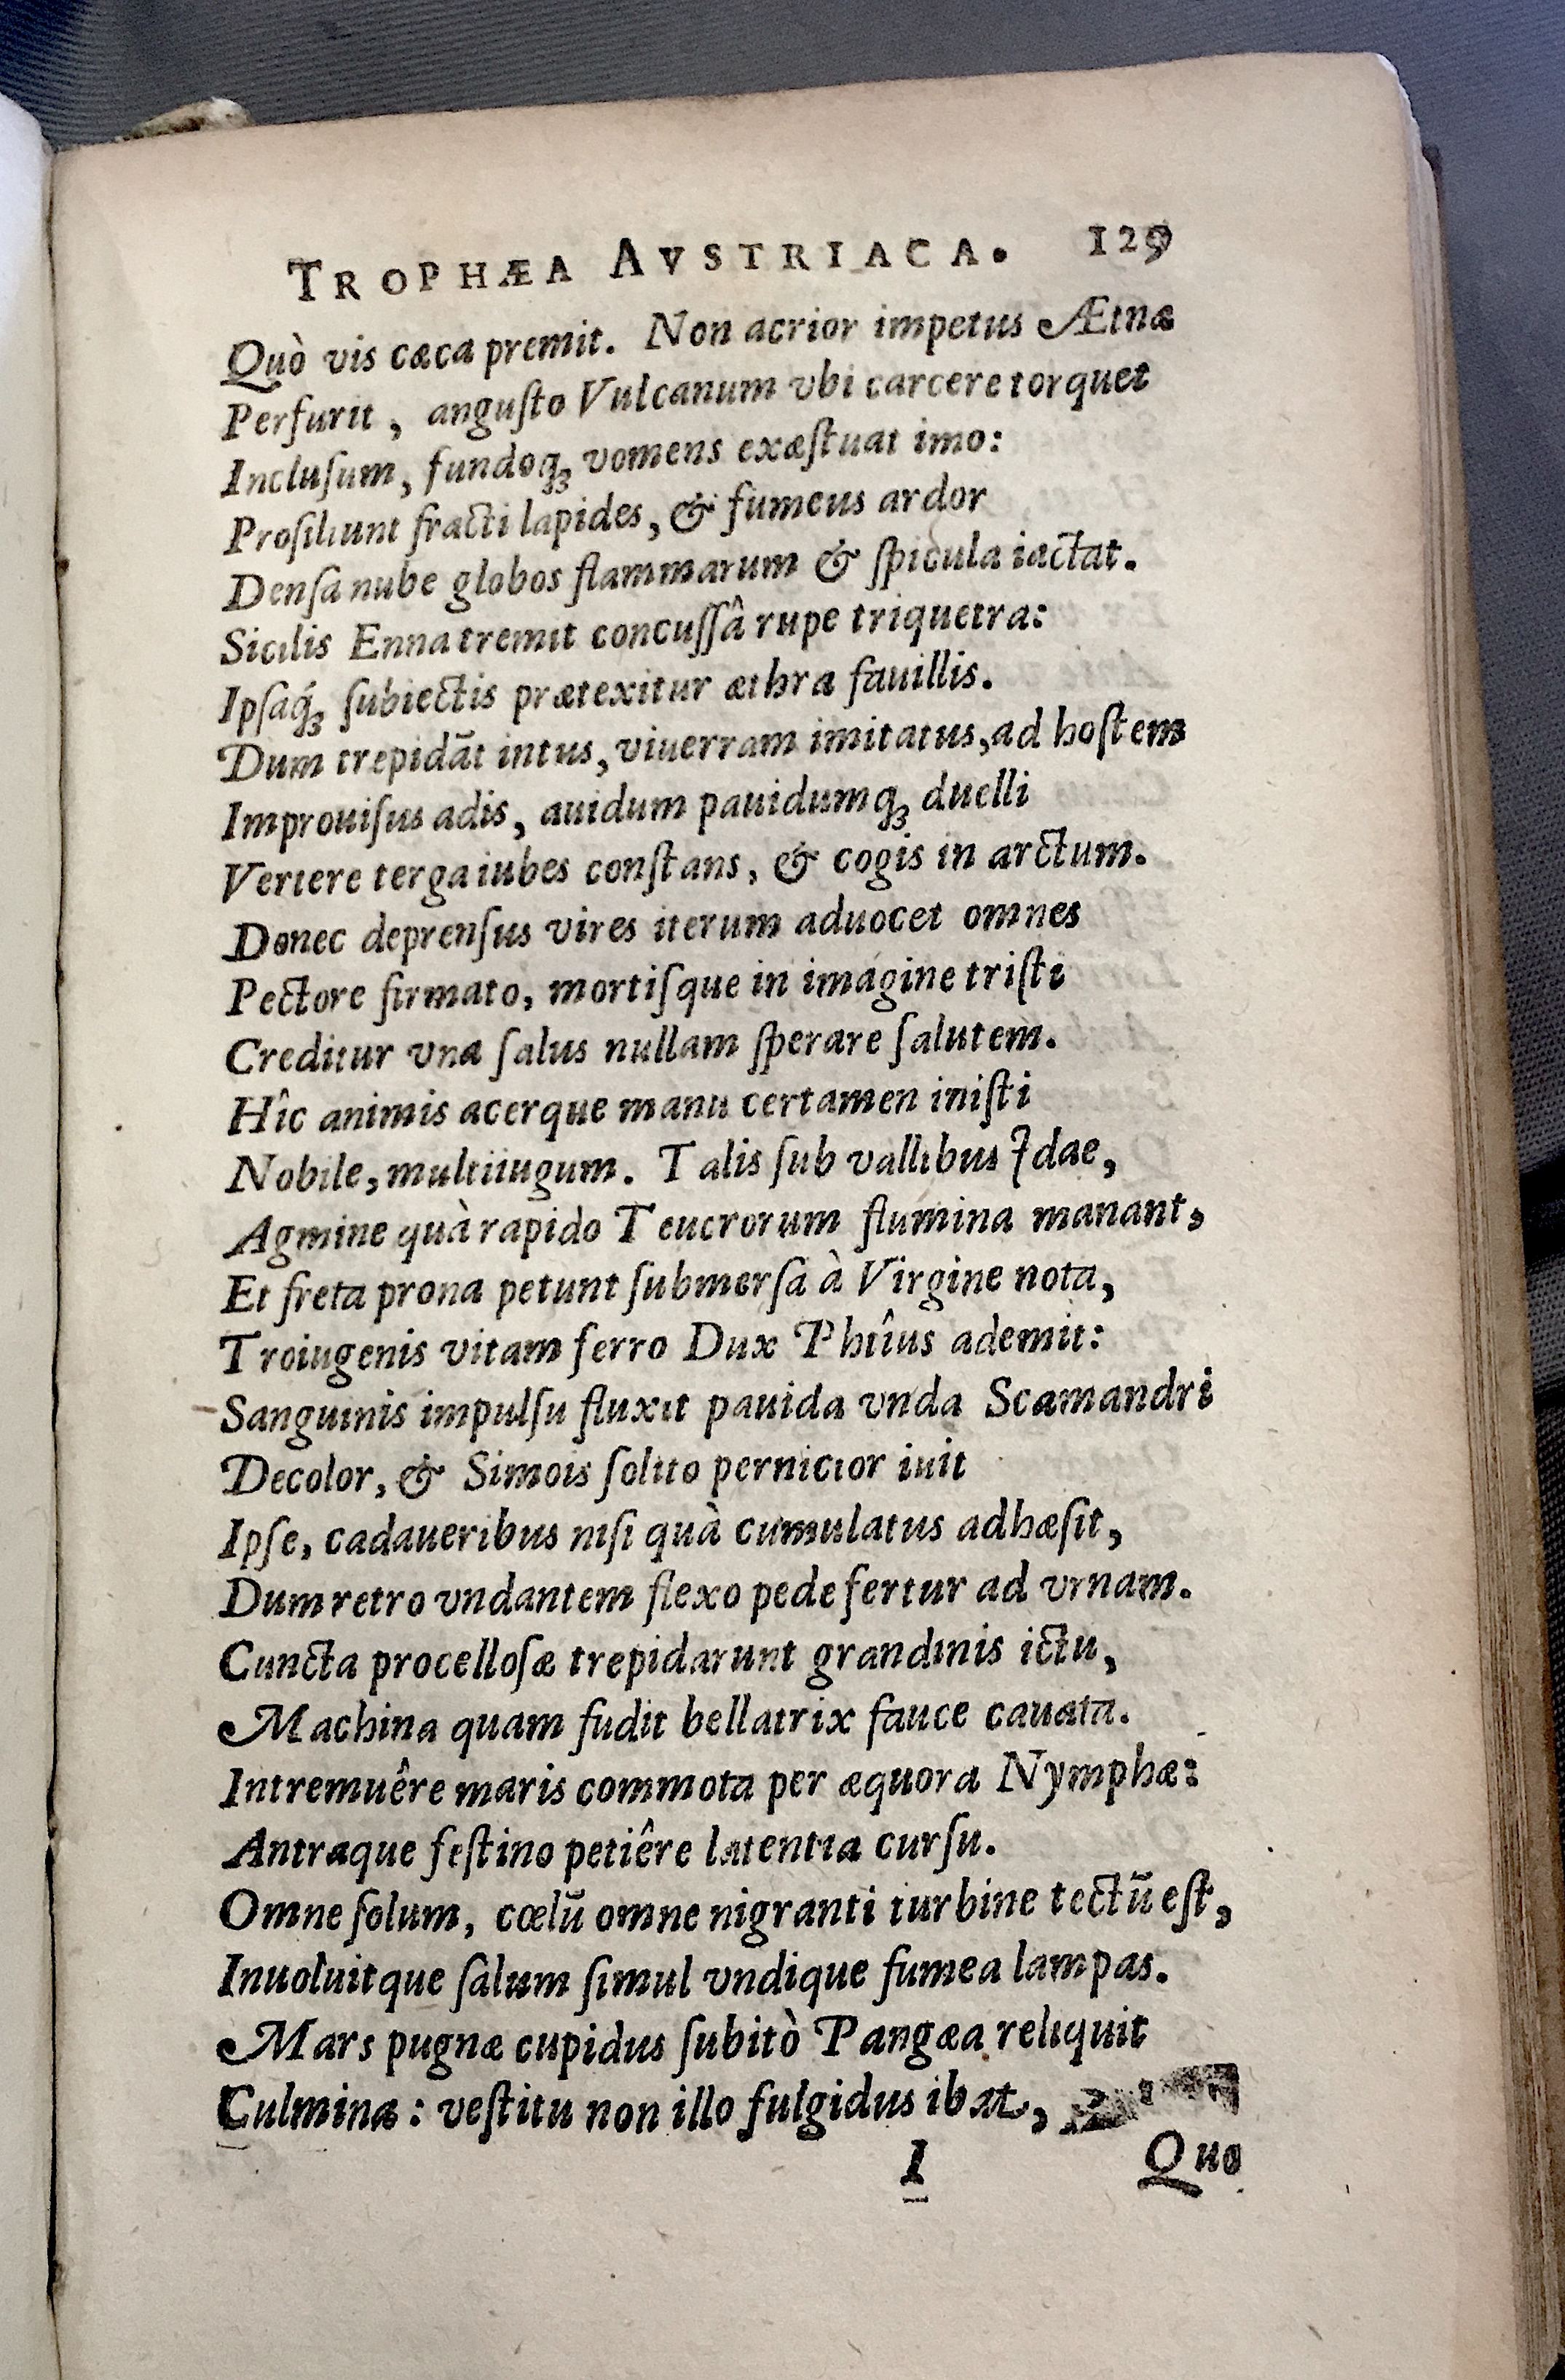 TROPHÆA AVSTRIACA. 129
Quò vis cæca premit. Non acrior impetus Ætnæ
Perfurit, anguſto Vulcanum vbi carcere torquet
Incluſum, fundoq́ꝫ vomens exæſtuat imo:
Proſiliunt fracti lapides, & fumeus ardor
Denſa nube globos flammarum & ſpicula iactat.
Sicilis Enna tremit concuſſâ rupe triquetra:
Ipſaq́ꝫ ſubiectis prætexitur æthra fauillis.
Dum trepidãt intus, viuerram imitatus, ad hoſtem
Improuiſus adis, auidum pauidumqꝫ duelli
Vertere terga iubes conſtans, & cogis in arctum.
Donec deprenſus vires iterum aduocet omnes
Pectore firmato, mortiſque in imagine triſti
Creditur vna ſalus nullam ſperare ſalutem.
Hîc animis acerque manu certamen iniſti
Nobile, multiiugum. Talis ſub vallibus Idae,
Agmine quà rapido Teucrorum flumina manant,
Et freta prona petunt ſubmerſa à Virgine nota,
Troiugenis vitam ferro Dux Phtîus ademit:
Sanguinis impulſu fluxit pauida vnda Scamandri
Decolor, & Simois ſolito pernicior iuit
Ipſe, cadaueribus niſi quà cumulatus adhæſit,
Dum retro vndantem flexo pede fertur ad vrnam.
Cuncta procelloſæ trepidarunt grandinis ictu,
Machina quam fudit bellatrix fauce cauata.
Intremuêre maris commota per æquora Nymphæ:
Antraque feſtino petiêre latentia curſu.
Omne ſolum, cœlũ omne nigranti turbine tectũ eſt,
Inuoluitque ſalum ſimul vndique fumea lampas.
Mars pugnæ cupidus ſubitò Pangæa reliquit
Culmina: veſtitu non illo fulgidus ibat,
I Quo